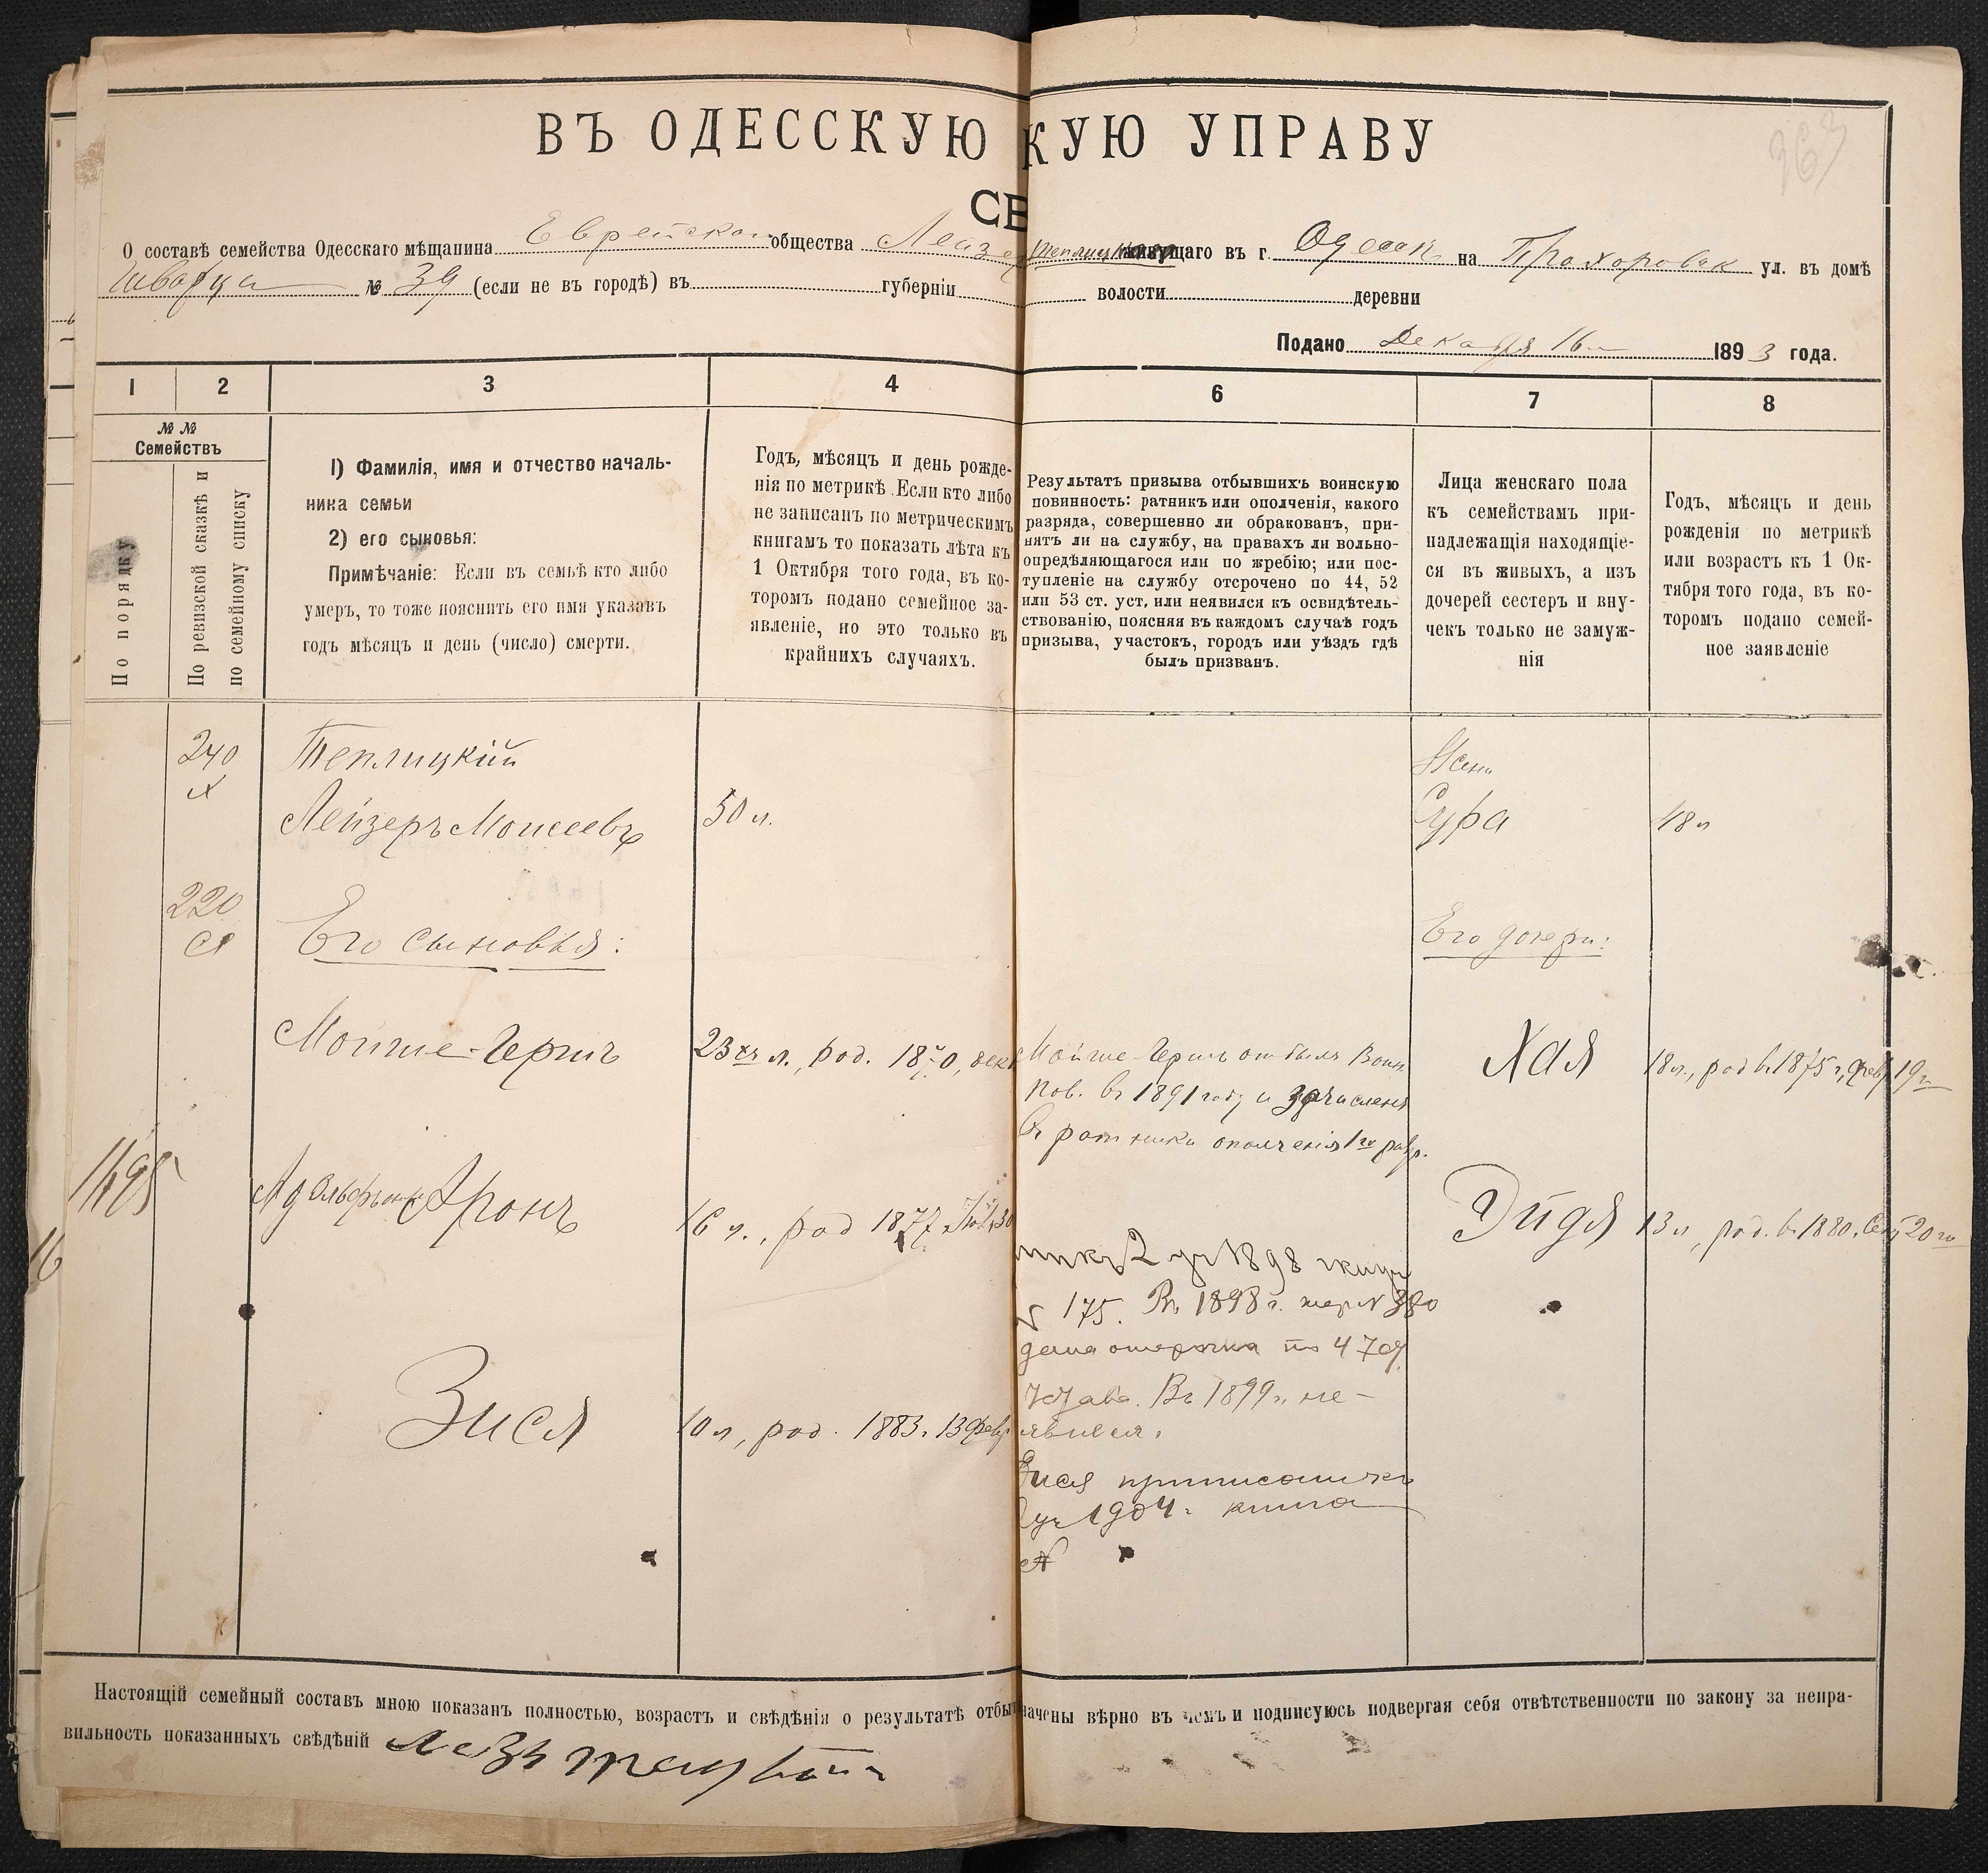 363
ВЪ ОДЕССКУЮ КУЮ УПРАВУ
СЕ
О составѣ семейства Одесскаго мѣщанина Еврейскаго общества Лейзер Теплицкаго живущаго въ г. Одессѣ на Прохоровск ул. въ домѣ
Шварца № 39 (если не въ городѣ) въ губерніи волости деревни
Подано Декабря 16 1893 года.
1 2 3 4 6 7 8
№ № Семействъ
По порядку
По ревизской сказкѣ и
по семейному списку
1) Фамилія, имя и отчество началь-
ника семьи
2) его сыновья:
Примѣчаніе: Если въ семьѣ кто либо
умеръ, то тоже пояснить его имя указавъ
годъ мѣсяцъ и день (число) смерти.
Годъ, мѣсяцъ и день рожде-
нія по метрикѣ. Если кто либо
не записанъ по метрическимъ
книгамъ то показать лѣта къ
1 Октября того года, въ ко-
торомъ подано семейное за-
явленіе, но это только въ
крайнихъ случаяхъ.
Результатъ призыва отбывшихъ воинскую
повинность: ратникъ или ополченія, какого
разряда, совершенно ли обракованъ, при-
нятъ ли на службу, на правахъ ли вольно-
опредѣляющагося или по жребію; или пос-
тупленіе на службу отсрочено по 44, 52
или 53 ст. уст. или неявился къ освидѣтель-
ствованію, поясняя въ каждомъ случаѣ годъ
призыва, участокъ, городъ или уѣздъ гдѣ
былъ призванъ.
Лица женскаго пола
къ семействамъ при-
надлежащія находящіе-
ся въ живыхъ, а изъ
дочерей сестеръ и вну-
чекъ только не замуж-
нія
Годъ, мѣсяцъ и день
рожденія по метрикѣ
или возрастъ къ 1 Ок-
тября того года, въ ко-
торомъ подано семей-
ное заявленіе
240
Теплицкій
Лейзеръ Моисеевъ
50 л.
Жена
Сура
48 л
220
Его сыновья:
Его дочери:
Мойше-Гершъ
23хъ л., род. 1870, дек
Мойше-Гершъ отбылъ Воин.
пов. въ 1891 году и зачисленъ
въ ратники ополченія 1го разр.
Хая
18 л., род в. 1875 г., Фев 19го
1495
16
Аронъ
16 л., род 1877 30
2 уч 1898
№ 175. Въ 1898 г. жер № 380
дана отсрочка по 47 ст
Устава. Въ 1899 г. не-
явился.
Эйдя
13 л, род. в. 1880. Сен 20го
Зися
10 л, род. 1883. 13 Февр
Зися приписанъ къ
уч 1904 г. книга
№
Настоящій семейный составъ мною показанъ полностью, возрастъ и свѣдѣнія о результатѣ отбыт начены вѣрно въ чемъ и подписуюсь подвергая себя отвѣтственности по закону за непра-
вильность показанныхъ свѣдѣній